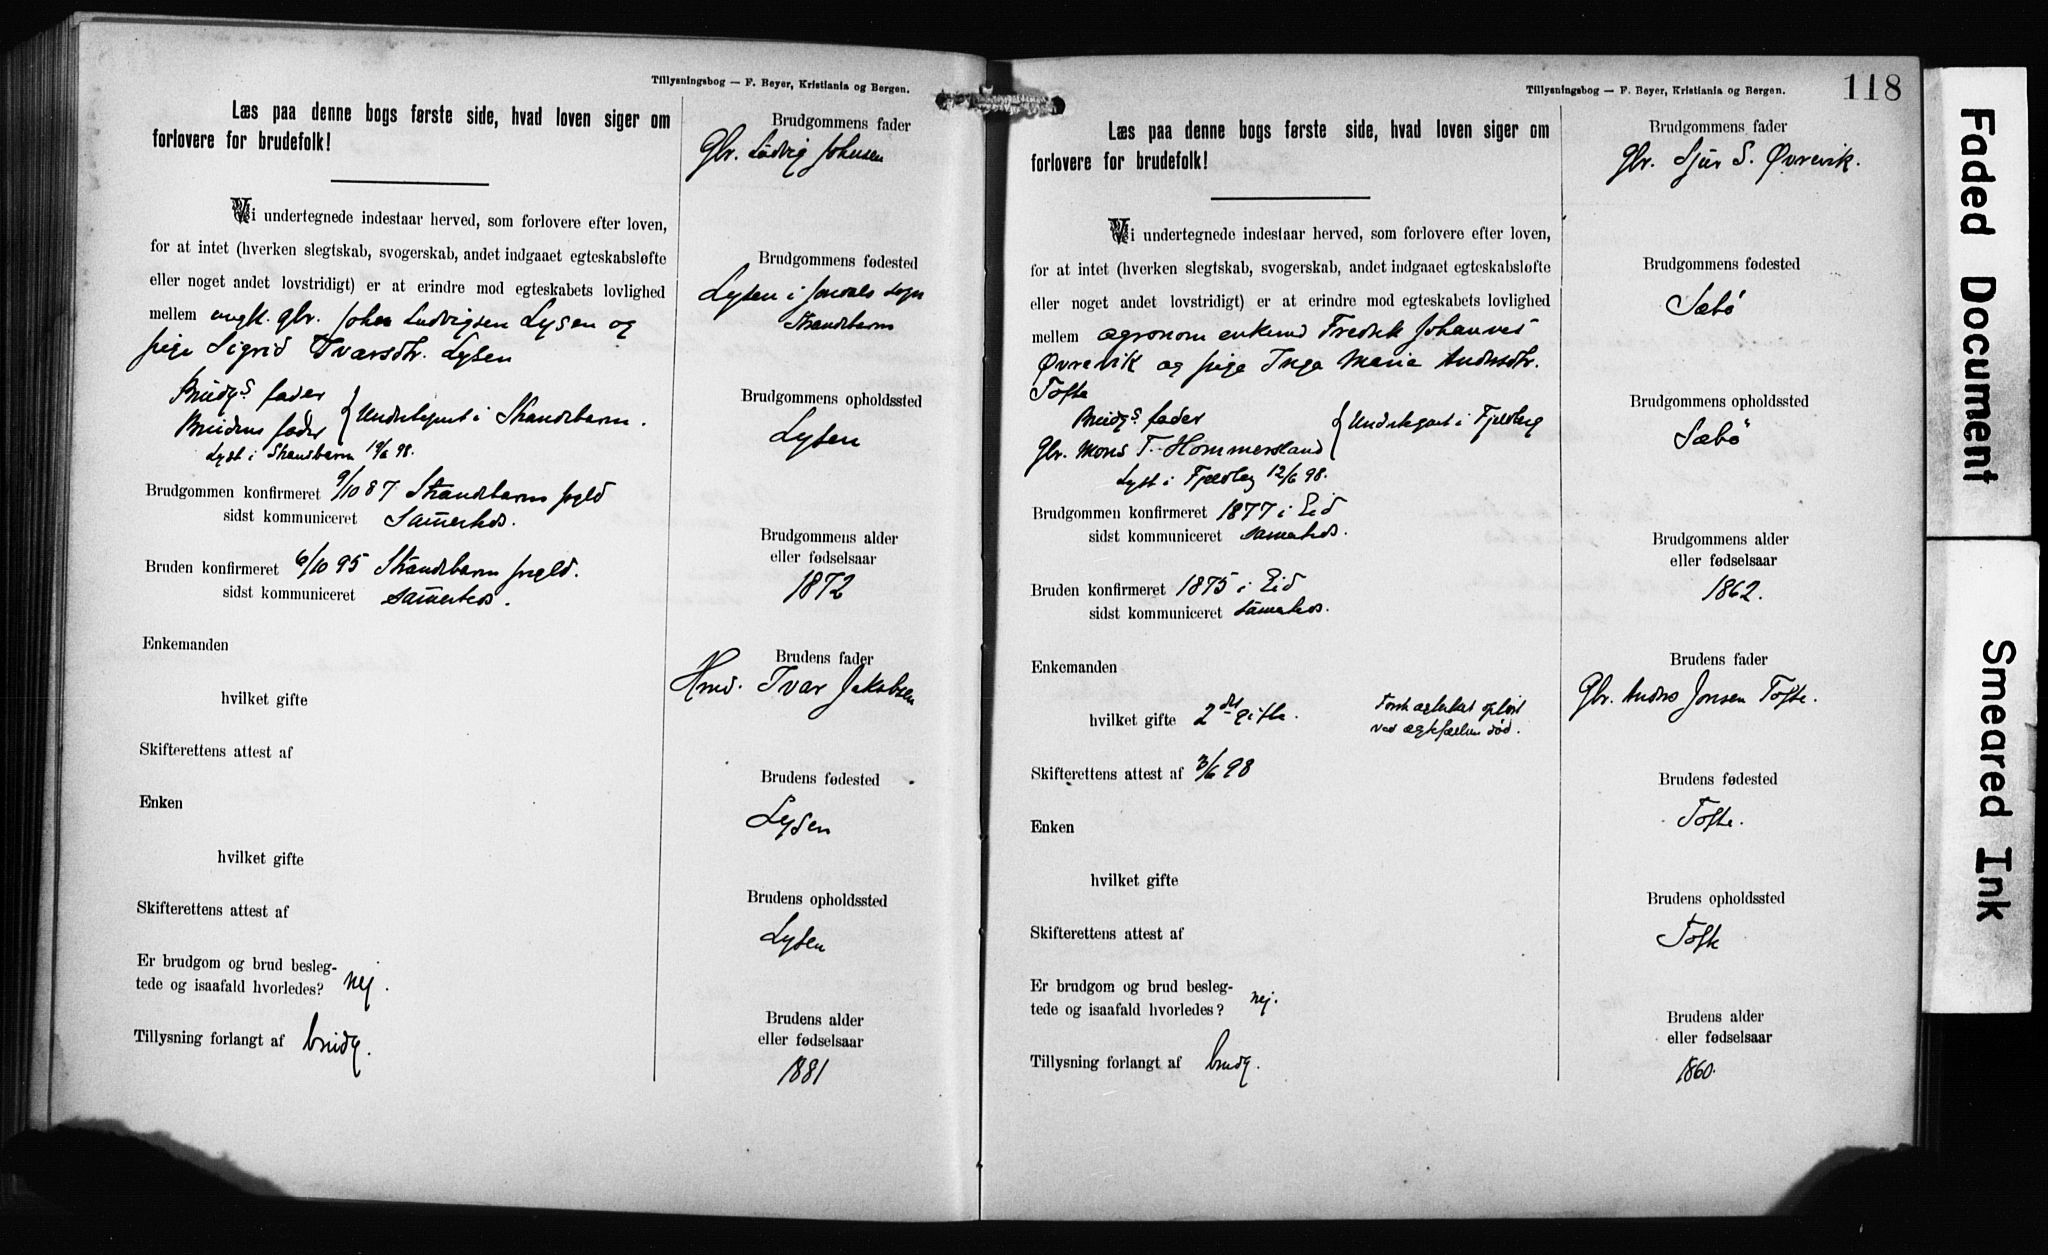 Tillysningsbog — F. Beyer, Kristiania og Bergen.
Læs paa denne bogs første side, hvad loven siger om
forlovere for brudefolk!
Vi undertegnede indestaar herved, som forlovere efter loven,
for at intet (hverken slegtskab, svogerskab, andet indgaaet egteskabsløfte
eller noget andet lovstridigt) er at erindre mod egteskabets lovlighed
mellem ungk. gbr. Johan Ludvigsen Lysen og
pige Sigrid Ivarsdtr. Lysen
Brudgs fader
Brudens fader } Undertegnet i Strandebarm.
Lyst i Strandebarm 19/6 98.
Brudgommen konfirmeret 9/10 87 Strandebarm prgld
sidst kommuniceret Sammesteds.
Bruden konfirmeret 6/10 95 Strandebarm prgld.
sidst kommuniceret Sammesteds.
Enkemanden
hvilket gifte
Skifterettens attest af
Enken
hvilket gifte
Skifterettens attest af
Er brudgom og brud besleg-
tede og isaafald hvorledes? nej.
Tillysning forlangt af brudg.
Brudgommens fader
Gbr. Ludvig Johnsen
Brudgommens fødested
Lysen i Jondals sogn
Strandebarm
Brudgommens opholdssted
Lysen
Brudgommens alder
eller fødselsaar
1872
Brudens fader
Hmd. Ivar Jakobsen
Brudens fødested
Lysen
Brudens opholdssted
Lysen
Brudens alder
eller fødselsaar
1881
Tillysningsbog — F. Beyer, Kristiania og Bergen.
118
Læs paa denne bogs første side, hvad loven siger om
forlovere for brudefolk!
Vi undertegnede indestaar herved, som forlovere efter loven,
for at intet (hverken slegtskab, svogerskab, andet indgaaet egteskabsløfte
eller noget andet lovstridigt) er at erindre mod egteskabets lovlighed
mellem agronom enkemd Fredrik Johannes
Øvrevik og pige Inga Marie Andersdtr.
Tofte
Brudgs fader
Gbr. Mons T. Hommersland } Undertegnet i Fjeldberg
Lyst i Fjeldberg 12/6 98.
Brudgommen konfirmeret 1877 i Eid
sidst kommuniceret sammesteds.
Bruden konfirmeret 1875 i Eid
sidst kommuniceret sammesteds.
Enkemanden
hvilket gifte 2det gifte. Første ægteskab opløst
ved ægtefællens død.
Skifterettens attest af 3/6 98
Enken
hvilket gifte
Skifterettens attest af
Er brudgom og brud besleg-
tede og isaafald hvorledes? nej.
Tillysning forlangt af brudg.
Brudgommens fader
Gbr. Sjur S. Øvrevik.
Brudgommens fødested
Sæbø
Brudgommens opholdssted
Sæbø
Brudgommens alder
eller fødselsaar
1862.
Brudens fader
Gbr. Anders Jonsen Tofte.
Brudens fødested
Tofte.
Brudens opholdssted
Tofte
Brudens alder
eller fødselsaar
1860.
Faded Document
Smeared Ink